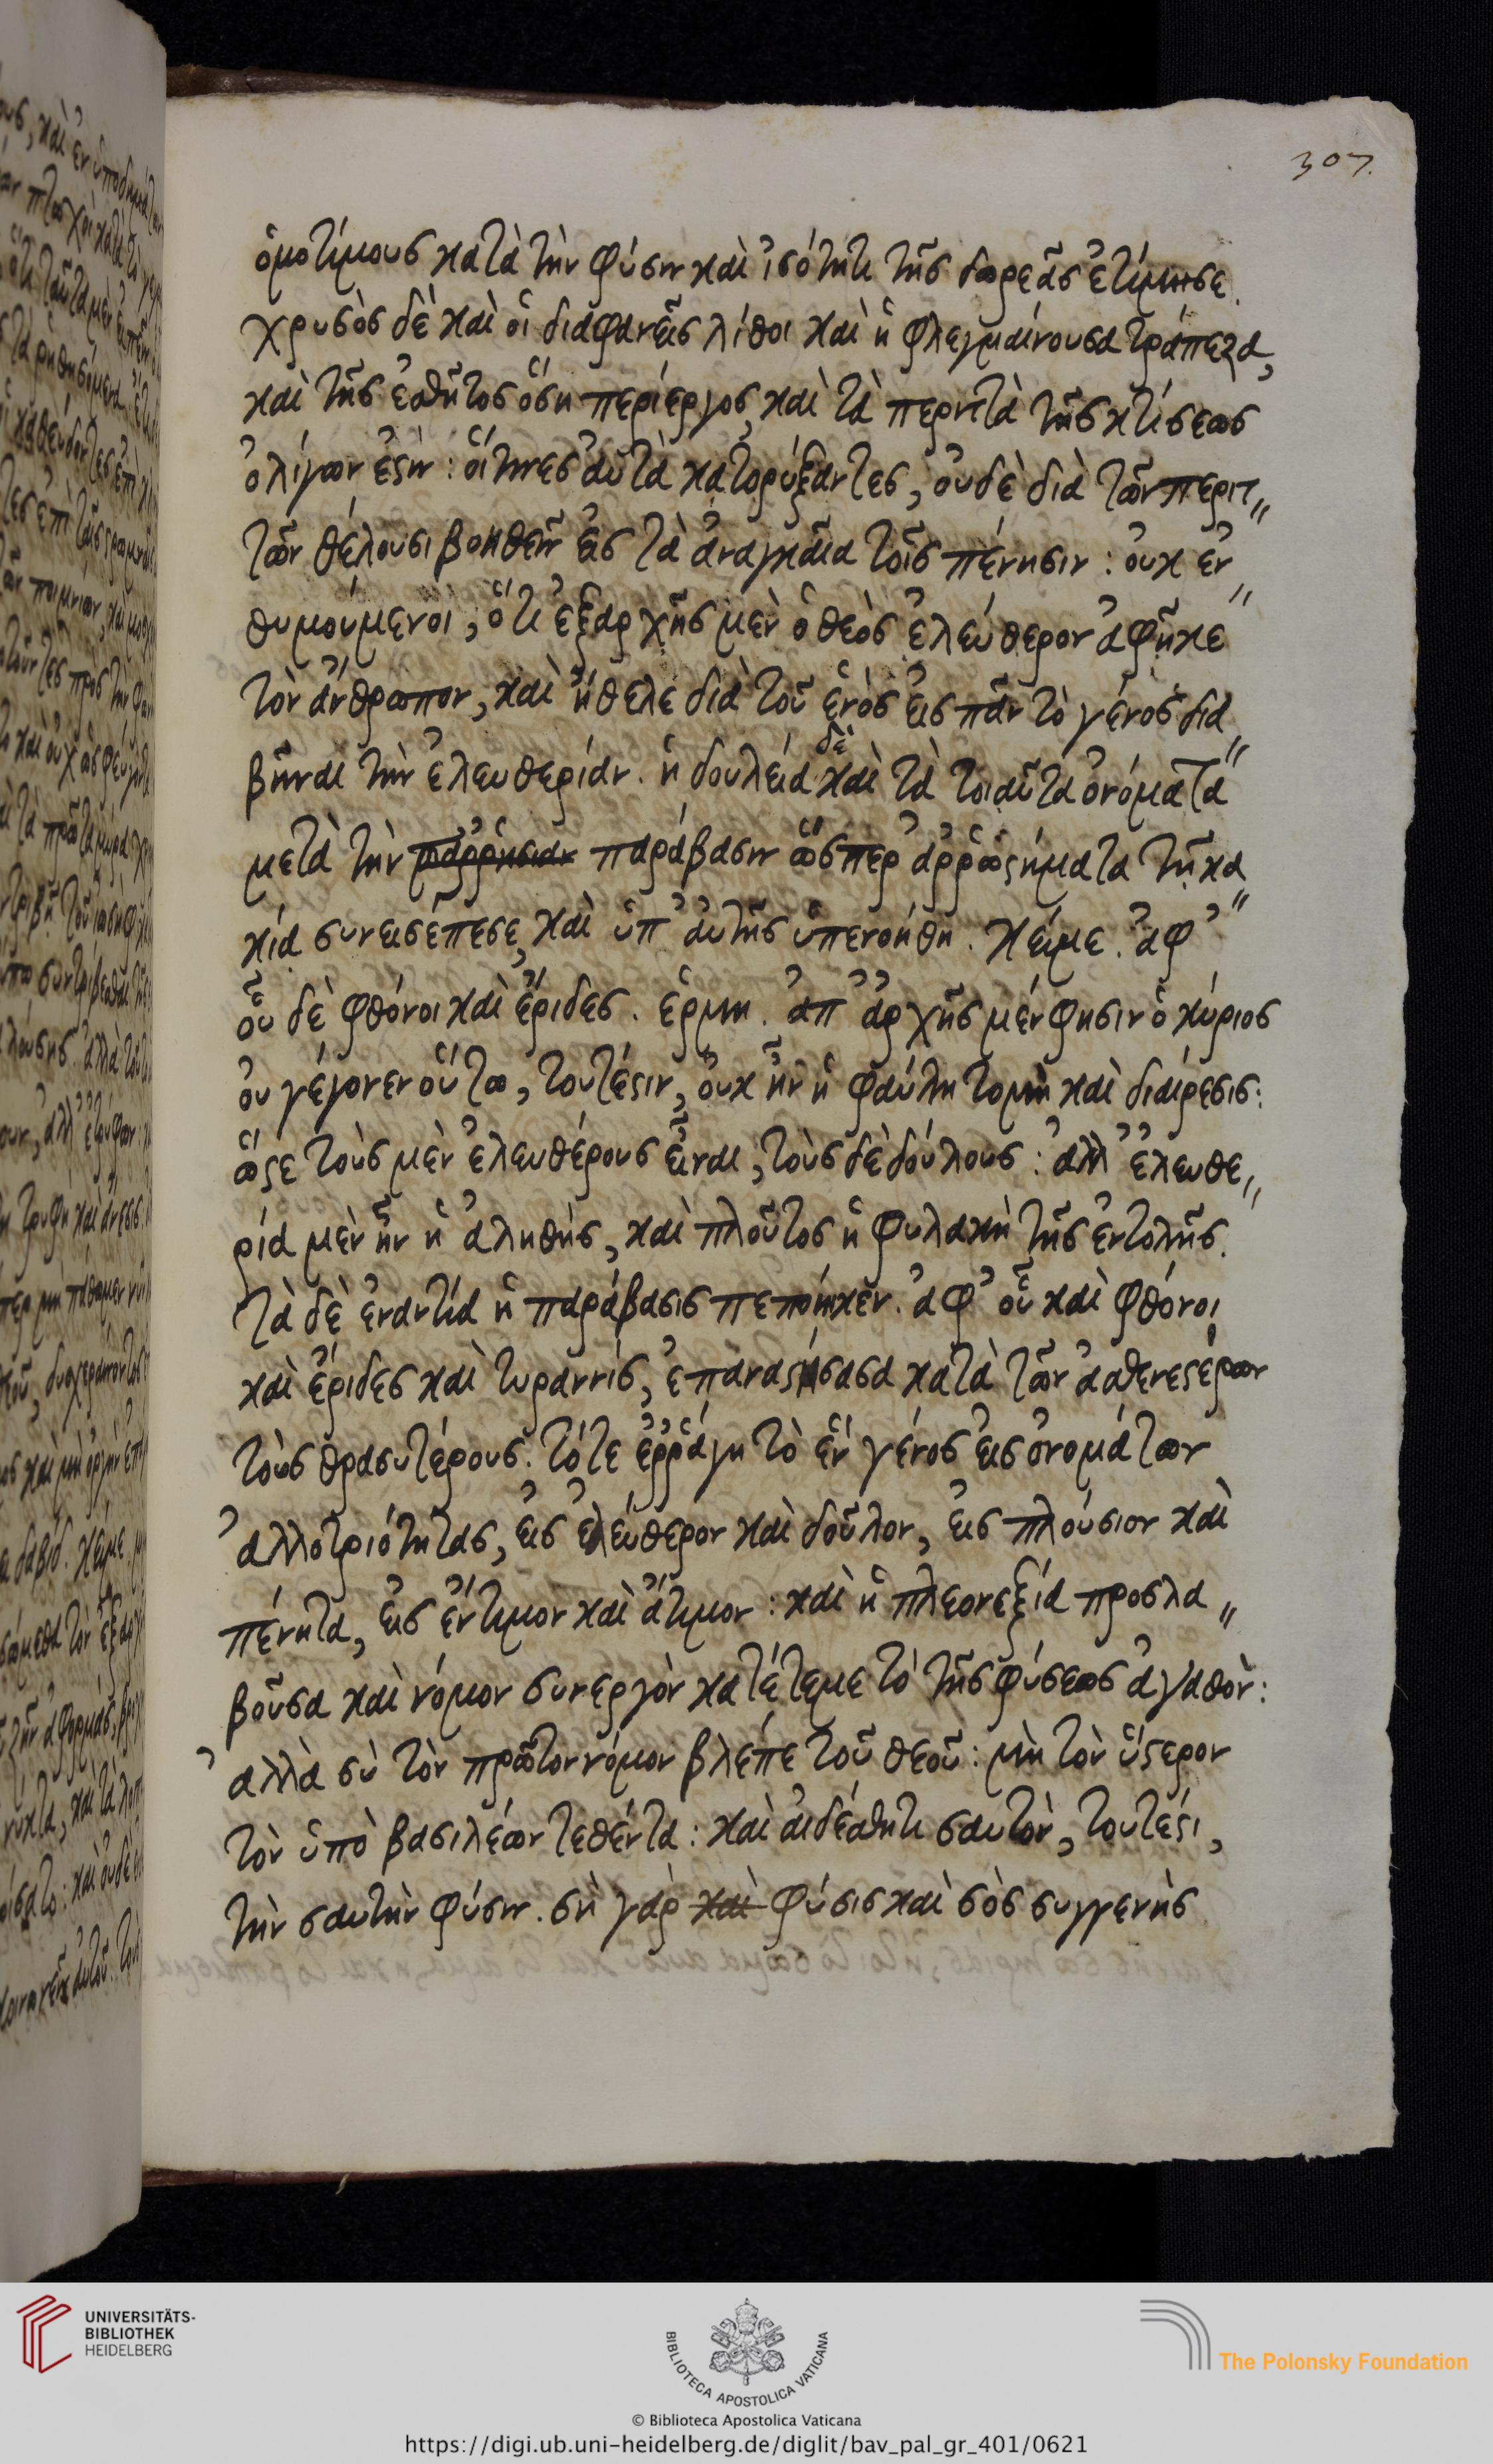 307.
ὁμοτίμους κατὰ τὴν φύσιν καὶ ἰσότητι τῆς δωρεᾶς ἐτίμησε.
χρυσὸς δὲ καὶ οἱ διαφανεῖς λίθοι καὶ ἡ φλεγμαίνουσα τράπεζα,
καὶ τῆς ἐσθῆτος ὅση περίεργος, καὶ τὰ περιττὰ τῆς κτίσεως
ὀλίγων ἐστὶν: οἵτινες αὐτὰ κατορύξαντες, οὐδὲ διὰ τῶν περιτ〃
τῶν θέλουσι βοηθεῖν εἰς τὰ ἀναγκαῖα τοῖς πένησιν: οὐκ ἐν〃
θυμούμενοι, ὅτι ἐξαρχῆς μὲν ὁ θεὸς ἐλεύθερον ἀφῆκε
τὸν ἄνθρωπον, καὶ ἤθελε διὰ τοῦ ἑνὸς εἰς πᾶν τὸ γένος δια〃
βῆναι τὴν ἐλευθερίαν. ἡ δουλεία δὲ καὶ τὰ τοιαῦτα ὀνόματα
μετὰ τὴν παῤῥησιαν παράβασιν ὥσπερ ἀῤῥωστήματα τῇ κα〃
κίᾳ συνεισέπεσε, καὶ ὑπ' αὐτῆς ὑπενοήθη. κείμε. ἀφ'
οὗ δὲ φθόνοι καὶ ἔριδες. ἑρμη. ἀπ' ἀρχῆς μέν φησιν ὁ κύριος
οὐ γέγονεν οὕτω, τουτέστιν, οὐκ ἦν ἡ φαύλη τομὴ καὶ διαίρεσις:
ὥστε τοὺς μὲν ἐλευθέρους εἶναι, τοὺς δὲ δούλους: ἀλλ' ἐλευθε〃
ρία μὲν ἦν ἡ ἀληθὴς, καὶ πλοῦτος ἡ φυλακὴ τῆς ἐντολῆς.
τὰ δὲ ἐναντία ἡ παράβασις πεποίηκεν. ἀφ' οὗ καὶ φθόνοι
καὶ ἔριδες καὶ τυραννίς, ἐπαναστήσασα κατὰ τῶν ἀσθενεστέρων
τοὺς θρασυτέρους. τότε ἐῤῥάγη τὸ ἓν γένος εἰς ὀνομάτων
ἀλλοτριότητας, εἰς ἐλεύθερον καὶ δοῦλον, εἰς πλούσιον καὶ
πένητα, εἰς ἔντιμον καὶ ἄτιμον: καὶ ἡ πλεονεξία προσλα〃
βοῦσα καὶ νόμον συνεργὸν κατέτεμε τὸ τῆς φύσεως ἀγαθὸν:
ἀλλὰ σὺ τὸν πρῶτον νόμον βλέπε τοῦ θεοῦ: μὴ τὸν ὕστερον
τὸν ὑπὸ βασιλέων τεθέντα: καὶ αἰδέσθητι σαυτὸν, τουτέστι,
τὴν σαυτὴν φύσιν. σὴ γὰρ καὶ φύσις καὶ σὸς συγγενὴς
UNIVERSITÄTS-
BIBLIOTHEK
HEIDELBERG
BIBLIOTECA APOSTOLICA VATICANA
The Polonsky Foundation
© Biblioteca Apostolica Vaticana
https://digi.ub.uni-heidelberg.de/diglit/bav_pal_gr_401/0621